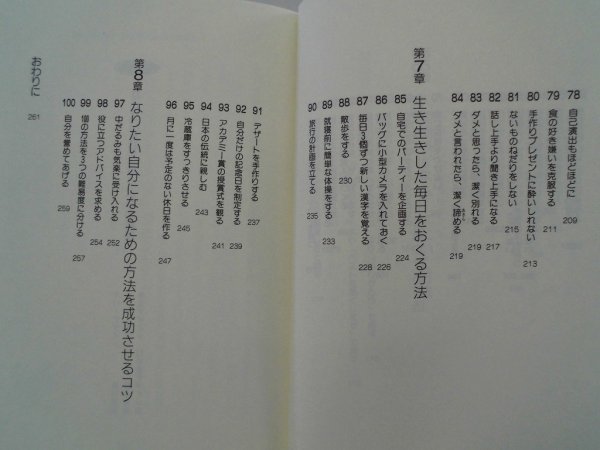 78 自己演出もほどほどに 209
79 食の好き嫌いを克服する 211
80 手作りプレゼントに酔いしれない 213
81 ないものねだりをしない 215
82 話し上手より聞き上手になる 217
83 ダメと思ったら、潔く別れる 219
84 ダメと言われたら、潔く諦める 219
第7章 生き生きした毎日をおくる方法
85 自宅でのパーティーを企画する 224
86 バッグに小型カメラを入れておく 226
87 毎日3個ずつ新しい漢字を覚える 228
88 散歩をする 230
89 就寝前に簡単な体操をする 233
90 旅行の計画を立てる 235
91 デザートを手作りする 237
92 自分だけの記念日を制定する 239
93 アカデミー賞の授賞式を観る 241
94 日本の伝統に親しむ 243
95 冷蔵庫をすっきりさせる 245
96 月に一度は予定のない休日を作る 247
第8章 なりたい自分になるための方法を成功させるコツ
97 中だるみも気楽に受け入れる 252
98 役に立つアドバイスを求める 254
99 憧の方法を3つの難易度に分ける 257
100 自分を誉めてあげる 259
おわりに 261